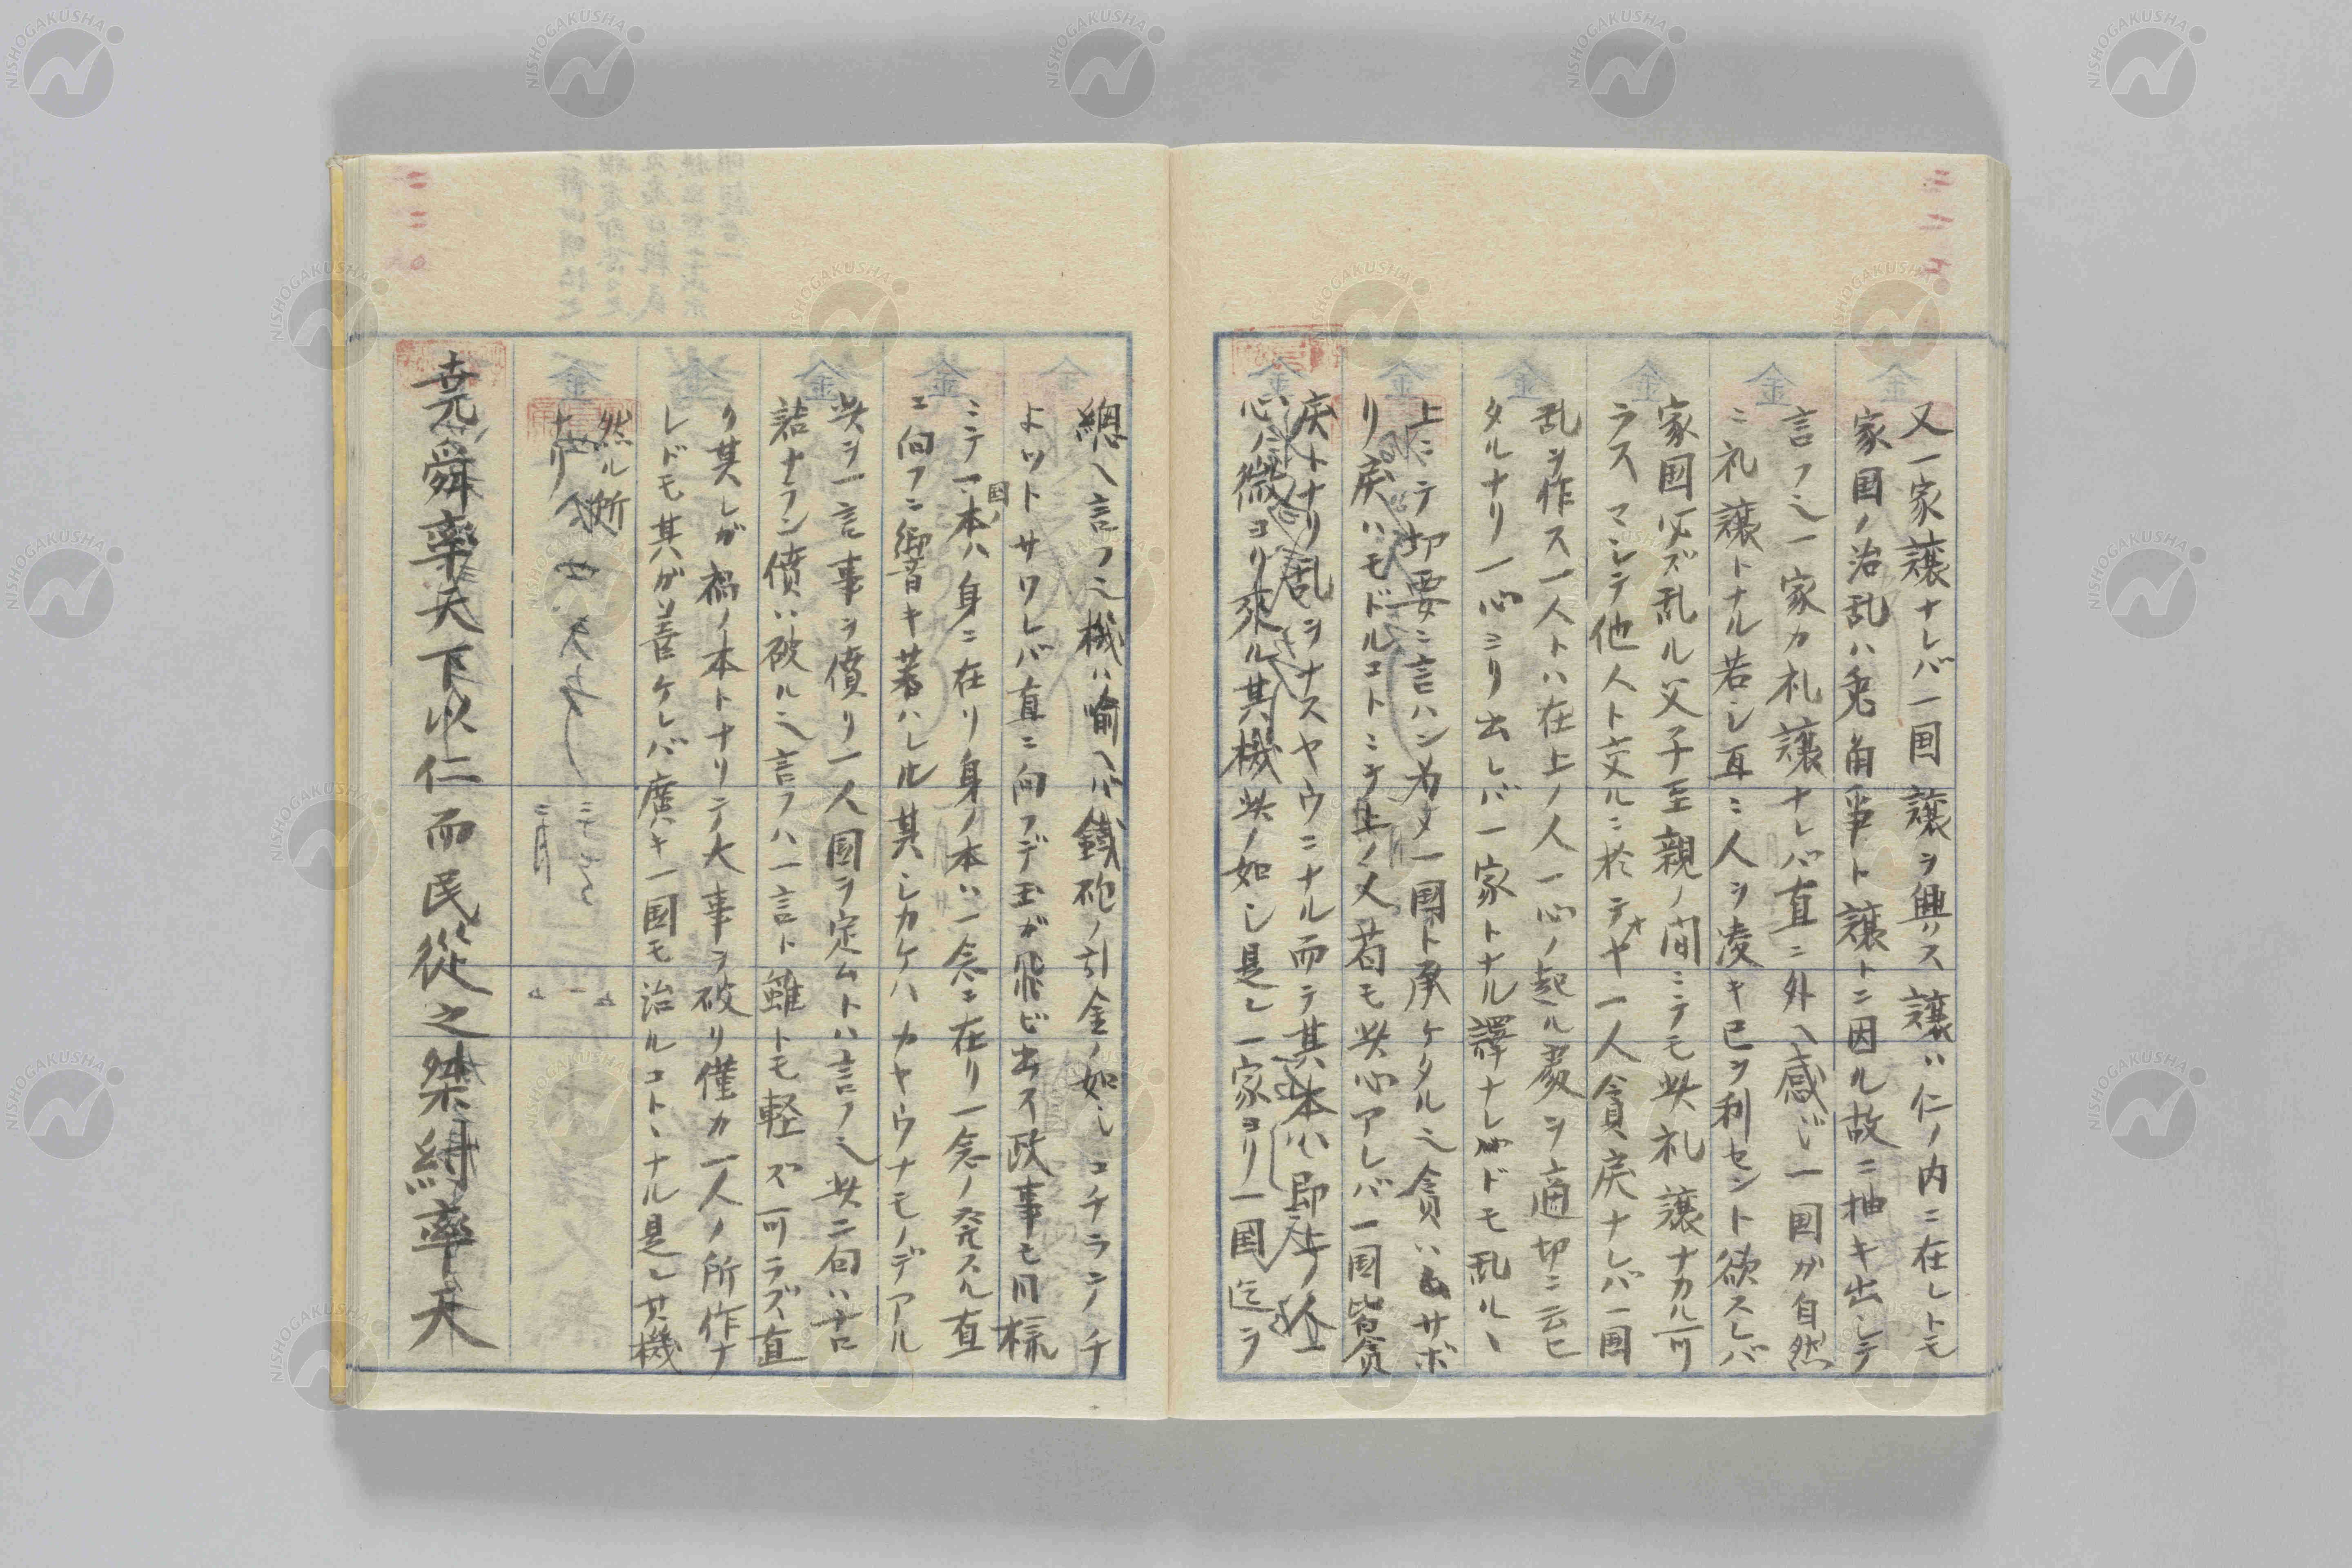 又一家譲ナレバ一国譲ヲ興ス譲ハ仁ノ内ニ在レトモ
家国ノ治乱ハ兎角爭ト譲トニ因ル故ニ抽キ出シテ
言フ也一家カ礼譲ナレバ直ニ外ヘ感ジ一国が自然
ニ礼譲トナル若シ互ニ人ヲ凌キ已ヲ利セント欲スレバ
家国必ズ乱ル父子至親ノ間ニテモ此礼譲ナカル可
ラスマシテ他人ト交ルニ於テヤ一人貪戻ナレバ一国
乱ヲ作ス一人トハ在上ノ人一心ノ起ル處ヲ適切ニ云ヒ
タルナリ一心ヨリ出レバ一家トナル譯ナレドモ乱ルヽ
上ニテ切要ニ言ハン為メ一國ト承ケタル也貪ハムサボ
リ戻ハモドルコトニテ上ノ人若モ此心アレバ一國皆貪
戻トナリ乱ヲナスヤウニナル而テ其本ハ即上ノ人一
心ノ微ヨリ來ル其機此ノ如シ是レ一家ヨリ一国迄ヲ
總ヘ言フ也機ハ喻ヘバ鐵砲ノ引金ノ如シコチラニノチ
ヨツトサワレバ直ニ向フデ玉が飛ビ出ス政事モ同様
ニテ一国ノ本ハ身ニ在リ身ノ本ハ一念ニ在リ一念ノ発スル直
ニ向フニ響キ著ハレル其シカケハカヤウナモノデアル
此ヲ一言事ヲ僨リ一人國ヲ定ムトハ言フ也此二句ハ古
語ナラン僨ハ破ル也言フハ一言ト雖トモ軽ズ可ラズ直
ク其レが禍ノ本トナリテ大事ヲ破リ僅カ一人ノ所作ナ
レドモ其が善ケレバ廣キ一国モ治ルコトヽナル是レ其機
然ル所
ナリ
堯舜率天下以仁而民從之桀紂率天